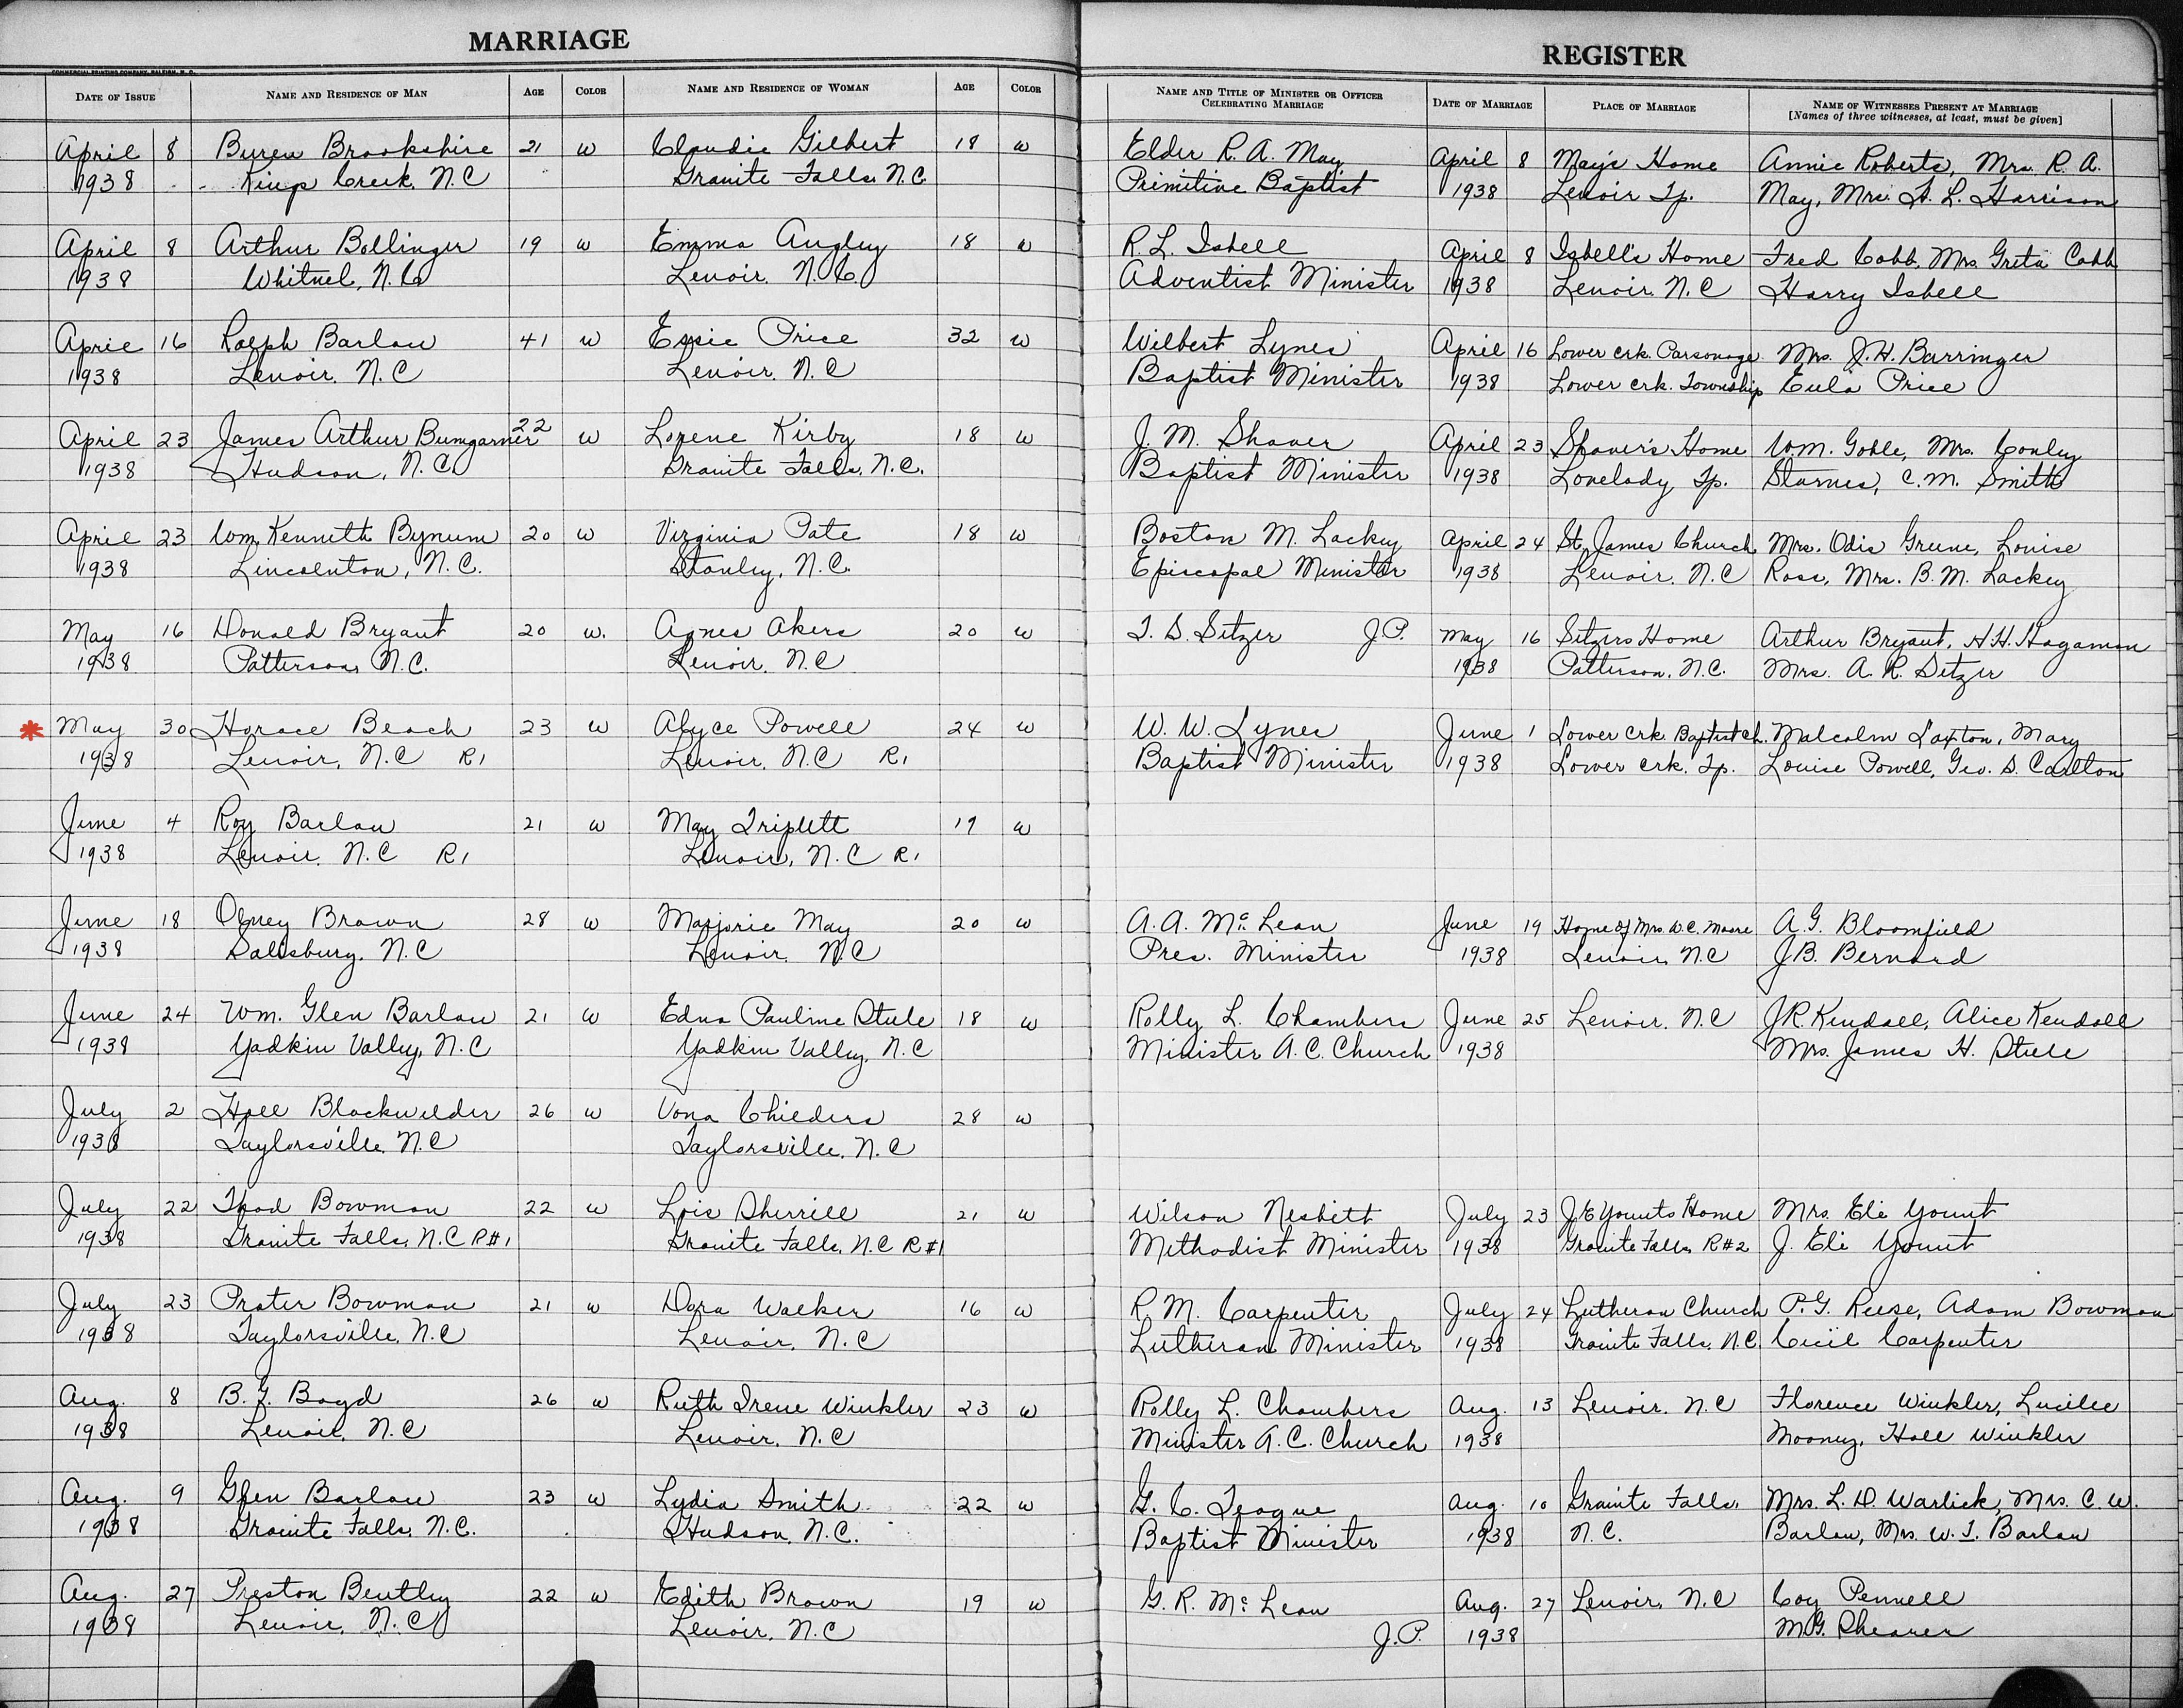 MARRIAGE
COMMERCIAL PRINTING COMPANY, RALEIGH, N. C.
DATE OF ISSUE NAME AND RESIDENCE OF MAN AGE COLOR NAME AND RESIDENCE OF WOMAN AGE COLOR
April 8 Buren Brookshire 21 w Claudie Gilbert 18 w
1938 Kings Creek, N.C Granite Falls. N.C.
April 8 Arthur Bollinger 19 w Emma Augley 18 w
1938 Whitnel, N.C Lenoir. N.C.
April 16 Ralph Barlow 41 w Essie Price 32 w
1938 Lenoir. N.C Lenoir. N.C
April 23 James Arthur Bumgarner 22 w Lorene Kirby 18 w
1938 Hudson, N.C. Granite Falls, N.C.
April 23 Wm. Kenneth Bynum 20 w Virginia Pate 18 w
1938 Lincolnton, N.C. Stanley, N.C.
May 16 Donald Bryant 20 w. Agnes Akers 20 w
1938 Patterson, N.C. Lenoir. N.C
* May 30 Horace Beach 23 w Alyce Powell 24 w
1938 Lenoir, N.C R1 Lenoir. N.C R1
June 4 Roy Barlow 21 w May Triplett 19 w
1938 Lenoir. N.C R1 Lenoir, N.C R1
June 18 Olney Brown 28 w Marjorie May 20 w
1938 Salisbury. N.C Lenoir. N.C
June 24 Wm. Glen Barlow 21 w Edna Pauline Steele 18 w
1938 Yadkin Valley, N.C Yadkin Valley, N.C
July 2 Hall Blackwelder 26 w Vona Childers 28 w
1938 Taylorsville. N.C Taylorsville. N.C
July 22 Thad Bowman 22 w Lois Sherrill 21 w
1938 Granite Falls, N.C R#1 Granite Falls, N.C R#1
July 23 Prater Bowman 21 w Dora Walker 16 w
1938 Taylorsville, N.C Lenoir, N.C
Aug. 8 B. F. Boyd 26 w Ruth Irene Winkler 23 w
1938 Lenoir, N.C Lenoir, N.C
Aug. 9 Glen Barlow 23 w Lydia Smith 22 w
1938 Granite Falls, N.C. Hudson, N.C.
Aug. 27 Preston Bentley 22 w Edith Brown 19 w
1938 Lenoir, N.C Lenoir. N.C
REGISTER
NAME AND TITLE OF MINISTER OR OFFICER CELEBRATING MARRIAGE DATE OF MARRIAGE PLACE OF MARRIAGE NAME OF WITNESSES PRESENT AT MARRIAGE
[Names of three witnesses, at least, must be given]
Elder R. A. May April 8 May's Home Annie Roberts, Mrs. R. A.
Primitive Baptist 1938 Lenoir Tp. May, Mrs. A. L. Harrison
R. L. Isbell April 8 Isbell's Home Fred Cobb, Mrs. Greta Cobb
Adventist Minister 1938 Lenoir. N.C Harry Isbell
Wilbert Lynes April 16 Lower crk. Parsonage Mrs. J.H. Barringer
Baptist Minister 1938 Lower crk. Township Eula Price
J. M. Shaver April 23 Shaver's Home W.M. Goble, Mrs. Conley
Baptist Minister 1938 Lovelady Tp. Starnes, C.M. Smith
Boston M. Lackey April 24 St. James Church Mrs. Odis Greene, Louise
Episcopal Minister 1938 Lenoir, N.C Ross, Mrs. B.M. Lackey
T. S. Setzer J.P. May 16 Setzers Home Arthur Bryant, H.H. Hagaman
1938 Patterson, N.C. Mrs. A. R. Setzer
W. W. Lynes June 1 Lower crk Baptist ch. Malcolm Laxton, Mary
Baptist Minister 1938 Lower crk. Tp. Louise Powell, Geo. S. Carlton
A.A. McLean June 19 Home of Mrs. W.C. Moore A.G. Bloomfield
Pres. Minister 1938 Lenoir, N.C J.B. Bernard
Rolly L. Chambers June 25 Lenoir. N.C J.R. Kendall, Alice Kendall
Minister A.C. Church 1938 Mrs. James H. Steele
Wilson Nesbitt July 23 J.E Younts Home Mrs. Eli Yount
Methodist Minister 1938 Granite Falls, R#2 J. Eli Yount
R.M. Carpenter July 24 Lutheran Church P.G. Reese, Adam Bowman
Lutheran Minister 1938 Granite Falls. N.C. Cecil Carpenter
Rolly L. Chambers Aug. 13 Lenoir. N.C Florence Winkler, Lucille
Minister A.C. Church 1938 Mooney, Hall Winkler
G. C. Teague Aug. 10 Granite Falls, Mrs. L. D. Warlick, Mrs. C. W.
Baptist Minister 1938 N.C. Barlow, Mrs. W. T. Barlow
G. R. McLean Aug. 27 Lenoir, N.C Coy Pennell
J.P. 1938 M.G. Shearer